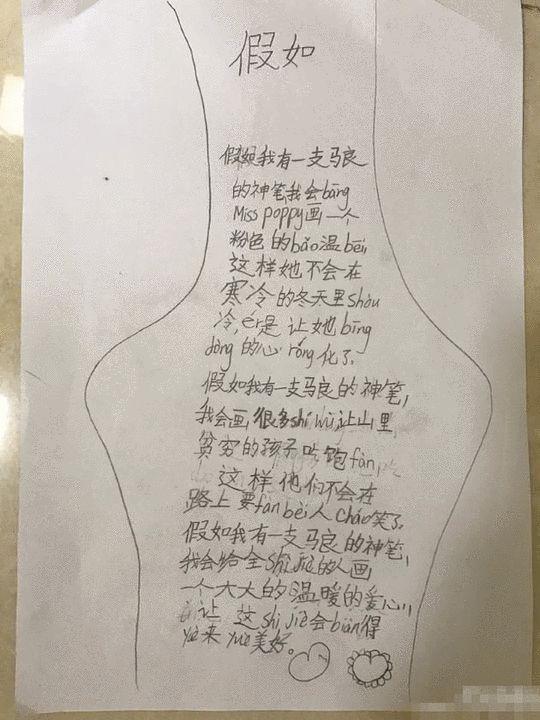 假如
假如我有一支马良
的神笔我会bāng
Miss poppy画一个
粉色的bǎo温bēi
这样她不会在
寒冷的冬天里shòu
冷,ér是让她bīng
dòng的心rǒng化了
假如我有一支马良的神笔,
我会画很多shí wù让山里
贫穷的孩子吃饱fàn,
这样他们不会在
路上要fàn bèi人cháo笑了
假如我有一支马良的神笔,
我会给全shì jiè的人画
一个大大的温暖的爱心
让这shì jiè会biàn得
yuè来yuè美好。